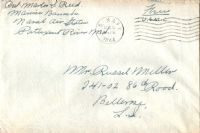 Marine Barracks
Naval Air Station
Patuxent River Md.
Free
Mr. Russel Miller
241-02 86th Road.
Bellerose,
L. I.